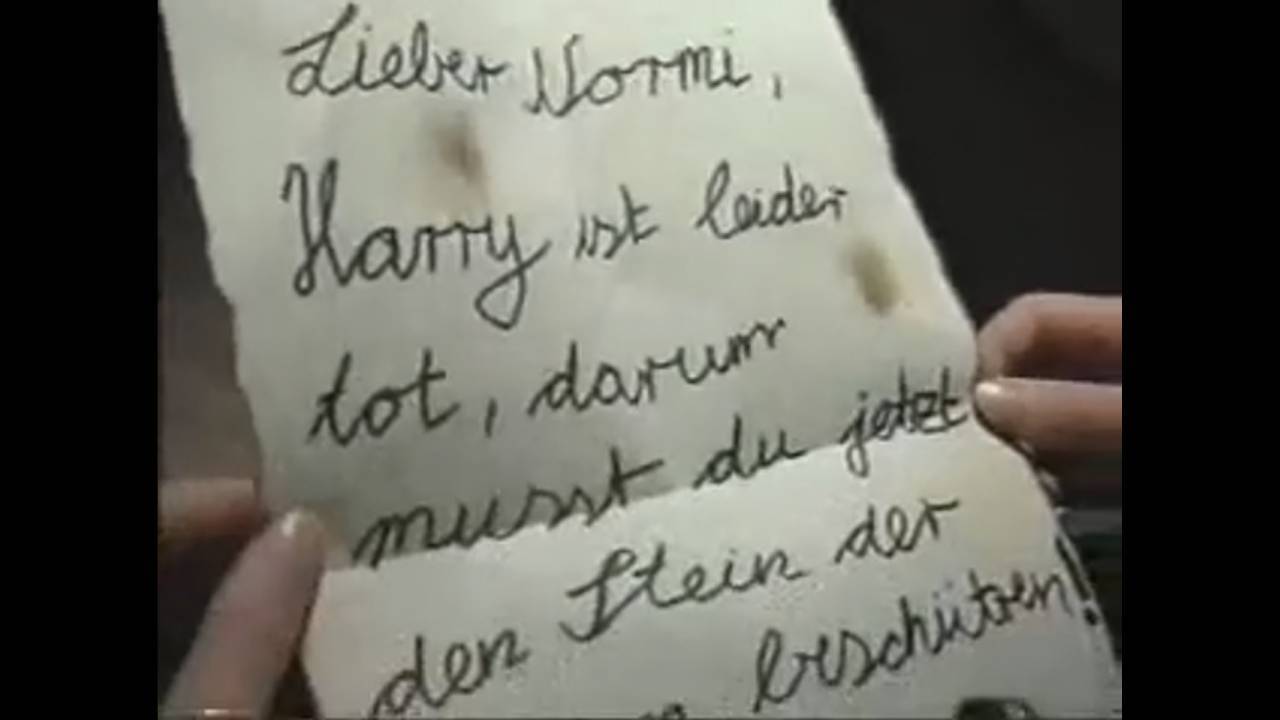 Lieber Normi,
Harry ist leider
tot, darum
musst du jetzt
den Stein der
beschützen!